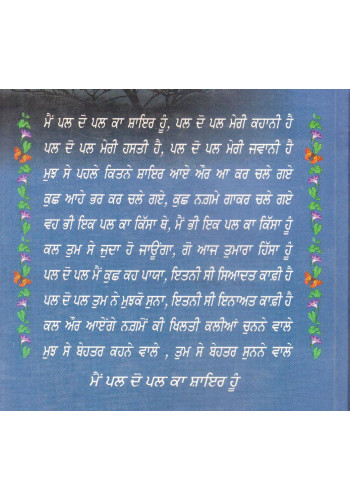 ਮੈਂ ਪਲ ਦੋ ਪਲ ਕਾ ਸ਼ਾਇਰ ਹੂੰ, ਪਲ ਦੋ ਪਲ ਮੇਰੀ ਕਹਾਨੀ ਹੈ
ਪਲ ਦੋ ਪਲ ਮੇਰੀ ਹਸਤੀ ਹੈ, ਪਲ ਦੋ ਪਲ ਮੇਰੀ ਜਵਾਨੀ ਹੈ
ਮੁਝ ਸੇ ਪਹਲੇ ਕਿਤਨੇ ਸ਼ਾਇਰ ਆਏ ਔਰ ਆ ਕਰ ਚਲੇ ਗਏ
ਕੁਛ ਆਹੇ ਭਰ ਕਰ ਚਲੇ ਗਏ, ਕੁਛ ਨਗ਼ਮੇ ਗਾਕਰ ਚਲੇ ਗਏ
ਵਹ ਭੀ ਇਕ ਪਲ ਕਾ ਕਿੱਸਾ ਥੇ, ਮੈਂ ਭੀ ਇਕ ਪਲ ਕਾ ਕਿੱਸਾ ਹੂੰ
ਕਲ ਤੁਮ ਸੇ ਜੁਦਾ ਹੋ ਜਾਊਂਗਾ, ਗੋ ਆਜ ਤੁਮਾਰਾ ਹਿੱਸਾ ਹੂੰ
ਪਲ ਦੋ ਪਲ ਮੈਂ ਕੁਛ ਕਹ ਪਾਯਾ, ਇਤਨੀ ਸੀ ਸਿਆਦਤ ਕਾਫ਼ੀ ਹੈ
ਪਲ ਦੋ ਪਲ ਤੁਮ ਨੇ ਮੁਝਕੋ ਸੁਨਾ, ਇਤਨੀ ਸੀ ਇਨਾਅਤ ਕਾਫ਼ੀ ਹੈ
ਕਲ ਔਰ ਆਏਂਗੇ ਨਗ਼ਮੋਂ ਕੀ ਖਿਲਤੀ ਕਲੀਆਂ ਚੁਨਨੇ ਵਾਲੇ
ਮੁਝ ਸੇ ਬੇਹਤਰ ਕਹਨੇ ਵਾਲੇ , ਤੁਮ ਸੇ ਬੇਹਤਰ ਸੁਨਨੇ ਵਾਲੇ
ਮੈਂ ਪਲ ਦੋ ਪਲ ਕਾ ਸ਼ਾਇਰ ਹੂੰ